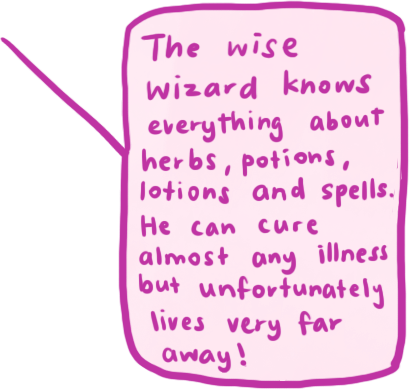 The wise
wizard knows
everything about
herbs, potions,
lotions and spells.
He can cure
almost any illness
but unfortunately
lives very far
away!